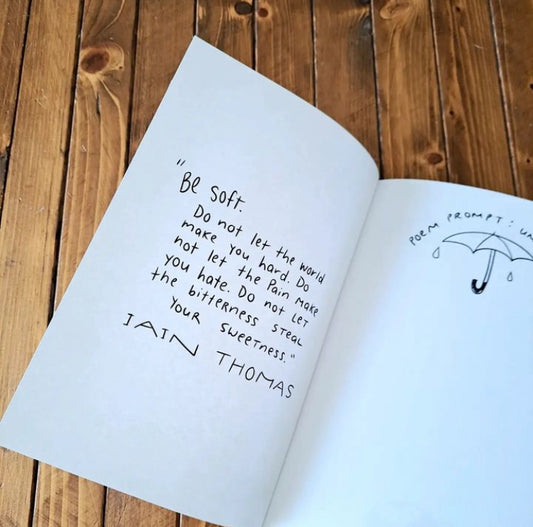 "
Be soft.
Do not let the world
make you hard. Do
not let the Pain make
you hate. Do not let
the bitterness steal
your sweetness."
IAIN THOMAS
POEM PROMPT: